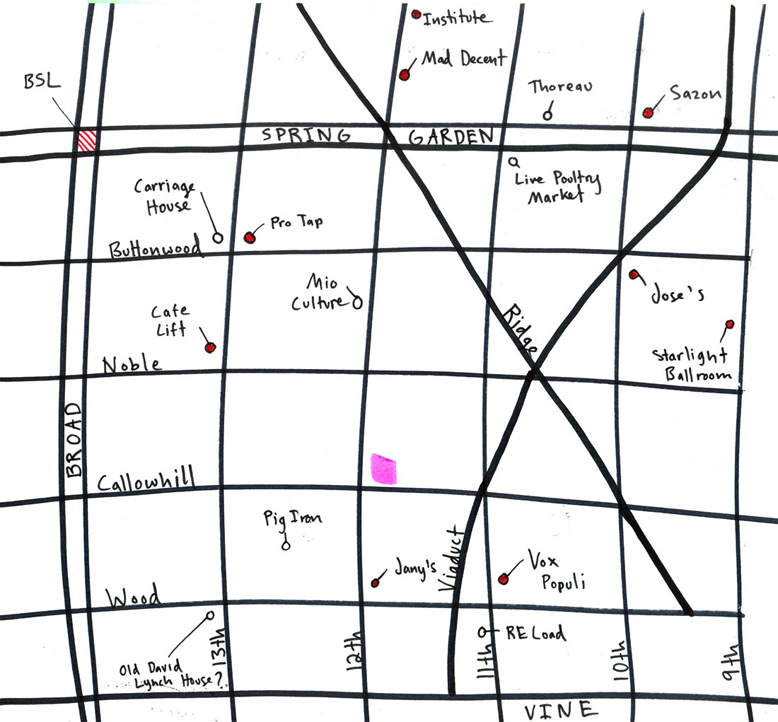 Institute
Mad Decent
BSL
Thoreau
Sazon
SPRING GARDEN
Live Poultry
Market
Carriage
House
Pro Tap
Buttonwood
Mio
Culture
Jose's
Cafe
Lift
Ridge
Starlight
Ballroom
Noble
BROAD
Callowhill
Pig Iron
Jany's
Viaduct
Vox
Populi
Wood
RE Load
Old David
Lynch House?
13th
12th
11th
10th
9th
VINE